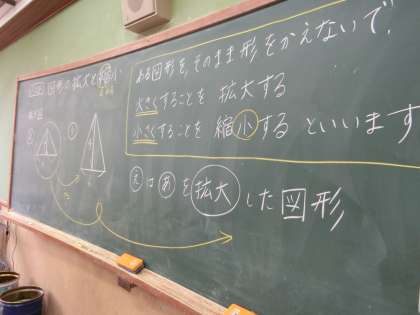 図形の拡大と縮小
ある図形を、そのまま形をかえないで、
大きくすることを 拡大する
小さくすることを 縮小する といいます
え は あ を 拡大 した 図形